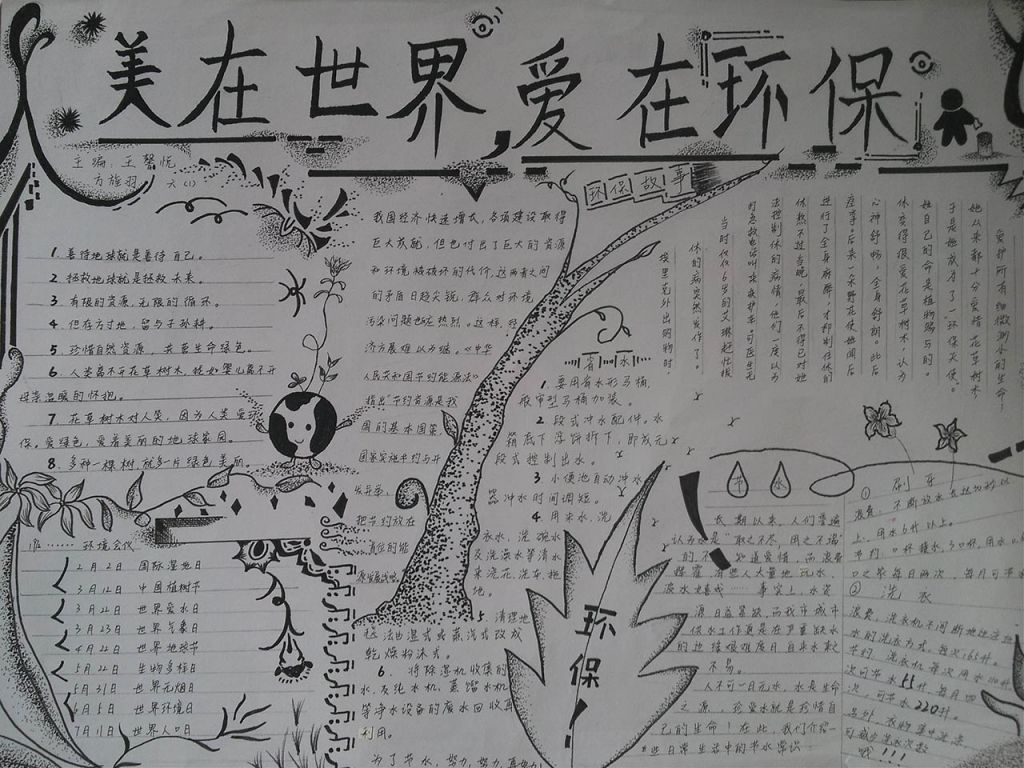 美在世界,爱在环保
主编:王馨悦
方旋羽 六(1)
1. 善待地球就是善待自己。
2. 拯救地球就是拯救未来。
3. 有限的资源,无限的循环。
4. 但存方寸地,留与子孙耕。
5. 珍惜自然资源,共营生命绿色。
6. 人类离不开花草树木,犹如婴儿离不开
母亲温暖的怀抱。
7. 花草树木对人笑,因为人类爱环
保。爱绿色,爱着美丽的地球家园。
8. 多种一棵树,就多一片绿色美丽。
环境会化
2月2日 国际湿地日
3月12日 中国植树节
3月22日 世界爱水日
3月23日 世界气象日
4月22日 世界地球节
5月22日 生物多样日
5月31日 世界无烟日
6月5日 世界环境日
7月11日 世界人口日
我国经济快速增大,各项建设取得
巨大成就,但也付出了巨大的资源
和环境被破坏的代价,这两者之间
的矛盾日趋尖锐,群众对环境
污染问题也应热烈。这样,经
济方展难以为继。《中华
人民共和国节约能源法》
指出“节约资源是我
国的基本国策。
国家实施节约与开
发并举,
把节约放在
首位的能
环保故事
爱护所有细微渺小的生命!
她从来都十分爱惜花草树木
于是她成为了一环保天使。
她自己的命是植物赐与的。
休变得很爱花草树木,认为
心神舒畅,全身舒朗。此后
座享。后来一朵野花使她闻后
进行了全身麻醉,才抑制住休的
休熬不过当晚,最后不得已对她
法控制休的病情,他们一度认为
时急救电话叫来救护车可医生无
当时仅仅6岁的艾琳赶忙拔
休的病突然发作了。
埃里克外出购物时,
省水
1. 要用省水形马桶,
2. 段式冲水配件。水
箱底下浮饼拆下,即成无
段式控制出水。
3. 小便池自动冲水
器冲水时间调短。
4. 用米水、洗
衣水、洗碗水
及洗澡水等清水
来浇花、洗车、拖
地。
5. 清理地
毯法由湿式或蒸汽式改成
乾燥粉沫式。
6. 将除湿机收集的
水,及纯水机、蒸馏水机
等净水设备的废水回收再
利用。
为了节水,努力,努力,再努力!
环保!
节水
长期以来,人们普遍
认为水是“取之不尽,用之不竭”
的,不知道爱惜,而浪费
源日益紧缺,而我市城市
供水工作更是在严重缺水
的地缘艰难度日,自来水就
不易。
人不可一日无水,水是生命
之源,珍爱水就是珍惜自
己的生命!在此,我们介绍一
些日常生活中的节水常识
① 刷牙
浪费:不断放水
上,用水6升以上。
② 洗衣
浪费,洗衣机不间断地边注
水的洗衣方式,每次165升。
节约,洗衣机每次用水110升
次可节水55升,每月四
次,可节水220升。
另外,衣物集中洗涤
可减少洗衣次数
哦!!!